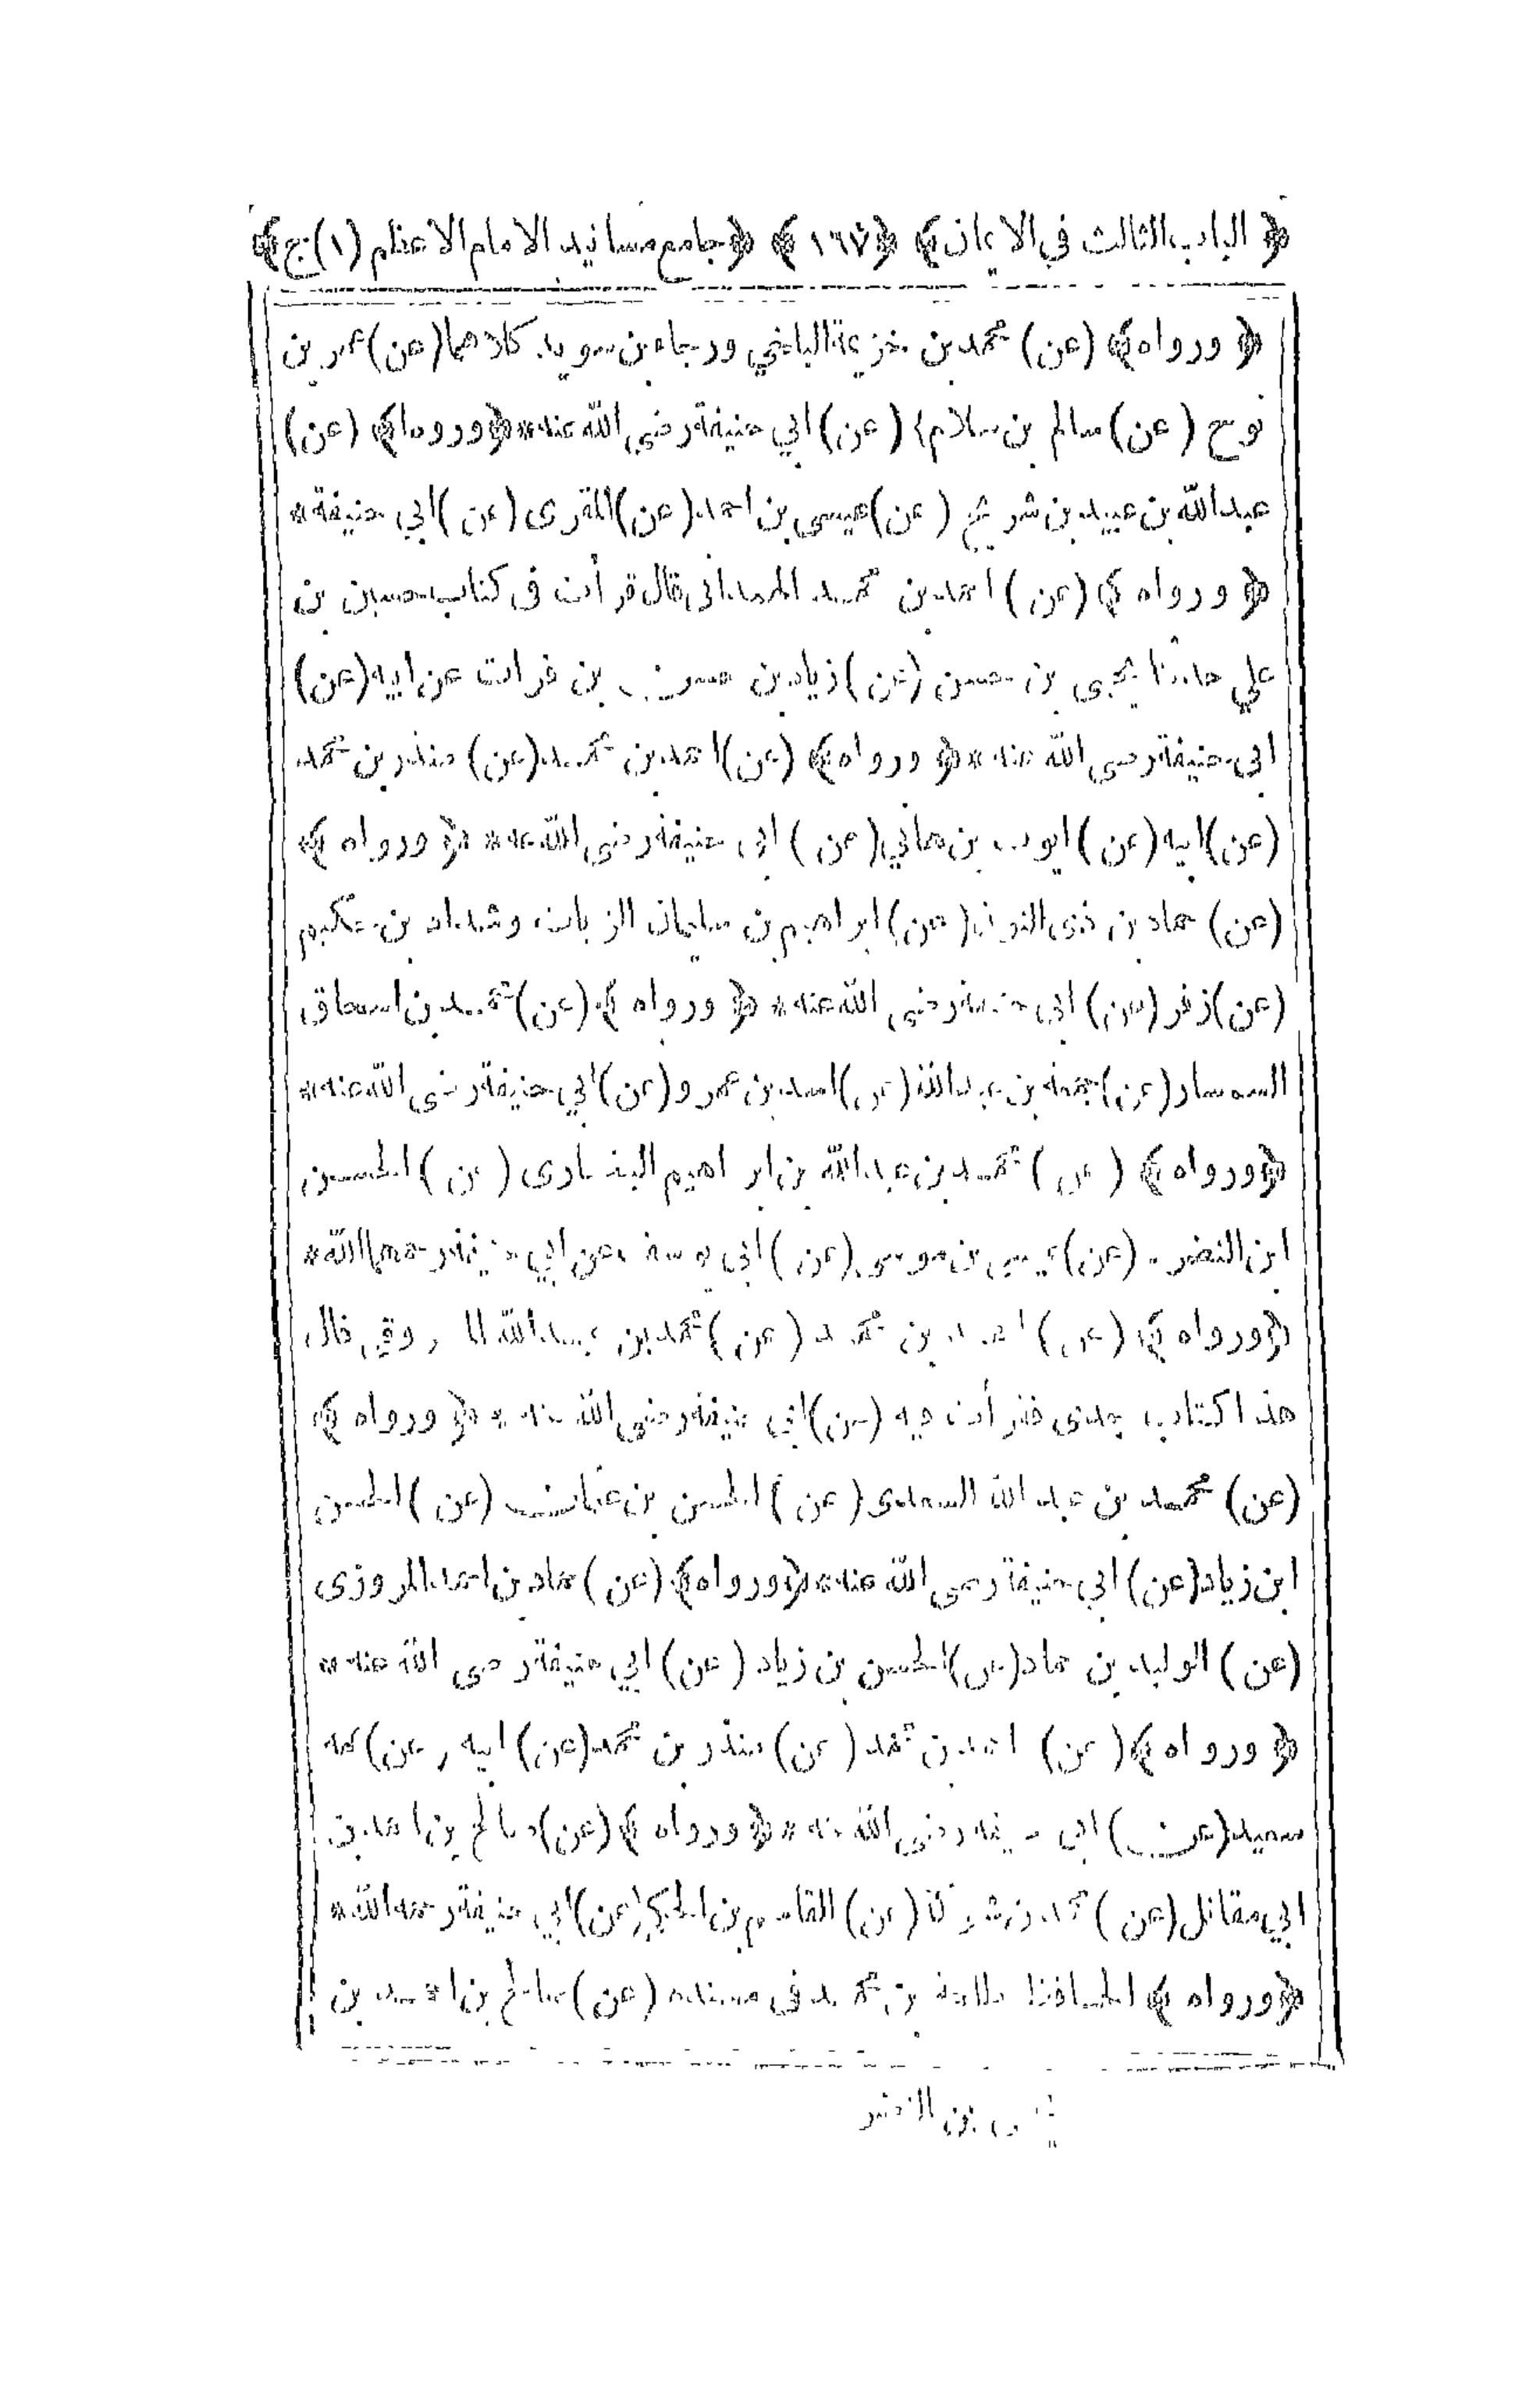 ﴿ الباب الثالث في الايمان ﴾ ﴿ ١٦٧ ﴾ ﴿ جامع مسانيد الامام الاعظم (١) ج ﴾
﴿ ورواه ﴾ (عن) محمد بن خزيمة البلخي ورجاء بن سويد كلاهما (عن) عمر بن
نوح (عن) سالم بن سلام (عن) ابي حنيفة رضي الله عنه * ﴿ ورواه ﴾ (عن)
عبد الله بن عبيد بن شريح (عن) عيسى بن احمد (عن) المقرى (عن) ابي حنيفة *
﴿ ورواه ﴾ (عن) احمد بن محمد الهمداني قال قرأت في كتاب حسين بن
علي حدثنا يحيى بن حسن (عن) زياد بن حسن بن فرات عن ابيه (عن)
ابى حنيفة رضى الله عنه * ﴿ ورواه ﴾ (عن) احمد بن محمد (عن) منذر بن محمد
(عن) ابيه (عن) ايوب بن هاني (عن) ابى حنيفة رضى الله عنه * ﴿ ورواه ﴾
(عن) حماد بن ذى النون (عن) ابراهيم بن سليمان الزيات وشداد بن حكيم
(عن) زفر (عن) ابى حنيفة رضى الله عنه * ﴿ ورواه ﴾ (عن) محمد بن اسحاق
السمسار (عن) جمعة بن عبد الله (عن) اسد بن عمرو (عن) ابي حنيفة رضى الله عنه *
﴿ ورواه ﴾ (عن) محمد بن عبد الله بن ابراهيم البخارى (عن) الحسين
ابن النضر (عن) عيسى بن موسى (عن) ابى يوسف عن ابي حنيفة رحمهما الله *
﴿ ورواه ﴾ (عن) احمد بن محمد (عن) محمد بن عبد الله المسروقي قال
هذا كتاب جدى فقرأت فيه (عن) ابى حنيفة رضى الله عنه * ﴿ ورواه ﴾
(عن) محمد بن عبد الله السعدى (عن) الحسن بن عثمان (عن) الحسن
ابن زياد (عن) ابي حنيفة رضى الله عنه * ﴿ ورواه ﴾ (عن) حماد بن احمد المروزى
(عن) الوليد بن حماد (عن) الحسن بن زياد (عن) ابي حنيفة رضى الله عنه *
﴿ ورواه ﴾ (عن) احمد بن محمد (عن) منذر بن محمد (عن) ابيه (عن) عمه
سعيد (عن) ابى حنيفة رضى الله عنه * ﴿ ورواه ﴾ (عن) صالح بن احمد بن
ابي مقاتل (عن) محمد بن (عن) القاسم بن الحكم (عن) ابي حنيفة رحمه الله *
﴿ ورواه ﴾ الحافظ طلحة بن محمد في مسنده (عن) صالح بن احمد بن
بن